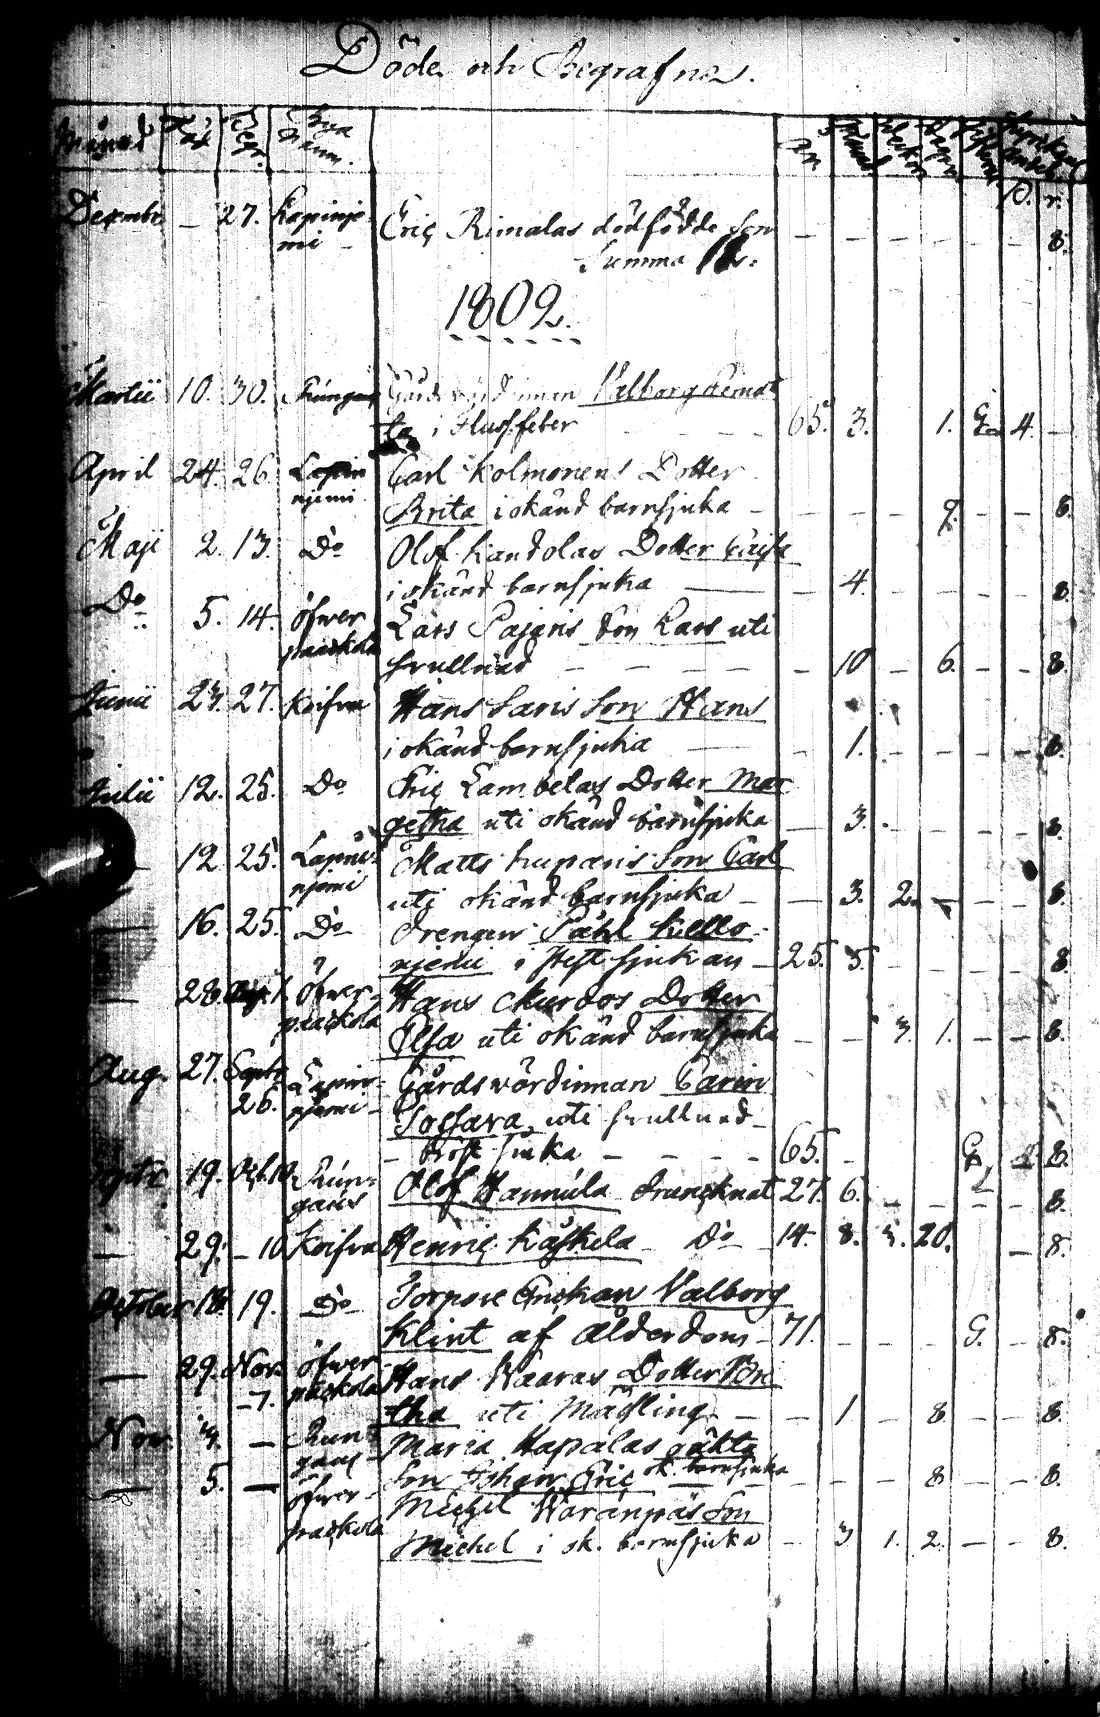 Döde och Begrafne.
Månad Död Begr. Byanamn. år Månad Weckor Dagar
R. r.
Decembr — 27. Lapinje-
mi — Eric Rimalas dödfödde Son — — — — — — 8.
Summa
1802.
Martii 10. 30. Gårdswärdinnan Valborg
ta i Flussfeber — — — 65. 3. 1. 4. —
April 24. 26. Lapin Carl Kolmonens Dotter
njemi Brita i okänd barnsjuka — — — — — 8.
Maji 2. 13. Do Olof Kandolas Dotter Caisa
i okänd barnsjuka — 4. 8.
Do 5. 14. öfwer Lars Pajaris Son Lars uti
praskola swullnad — — — — — 10 — 6. — — 8.
Junii 23. 27. Koifva Hans Saris Son Hans
i okänd barnsjuka — — 1. — — — — 8.
Julii 12. 25. Do Eric Lambelas Dotter Mar
getha uti okänd barnsjuka — 3. — — — — 8.
— 12. 25. Lapin- Matts huparis Son Carl
njemi uti okänd barnsjuka — — 3. 2. — — — 8.
— 16. 25. Do Drengen Påhl Kello-
njemi i Hetssjukan — 25. 5. — — — — 8.
— 28. Aug. 1. öfwer- Hans Murdos Dotter
praskola Elsa uti okänd barnsjuka — — 3. 1. — — 8.
Aug. 27. Septr Lapin- Gårdswärdinnan Carin
26. njemi — uti swullnad —
— bröst sjuka — — — — 65. — 8.
Septr 19. Octb. 10. Run-
gaus Olof Hannula druncknat 27. 6. — — — — 8.
— 29. — 10. Koifva Henric Käskela Do — 14. 8. 3. 20. — 8.
October 18. 19. Do Torpare Enckan Valborg
Klint af Ålderdom — 71. — — — G. — 8.
— 29. Nov. öfwer Hans Waaras Dotter Bri
— 7. praskola tha uti Mässling — — — 1 — 8. — — 8.
Nov. 3. — Run- Maria Hapalas oäkta
gaus — Son Johan Eric ok. barnsjuka — — — 8 — — 8.
— 5. — öfwer- Michel Waranpäs Son
praskola Michel i ok. barnsjuka — — 3 1. 2. — — 8.